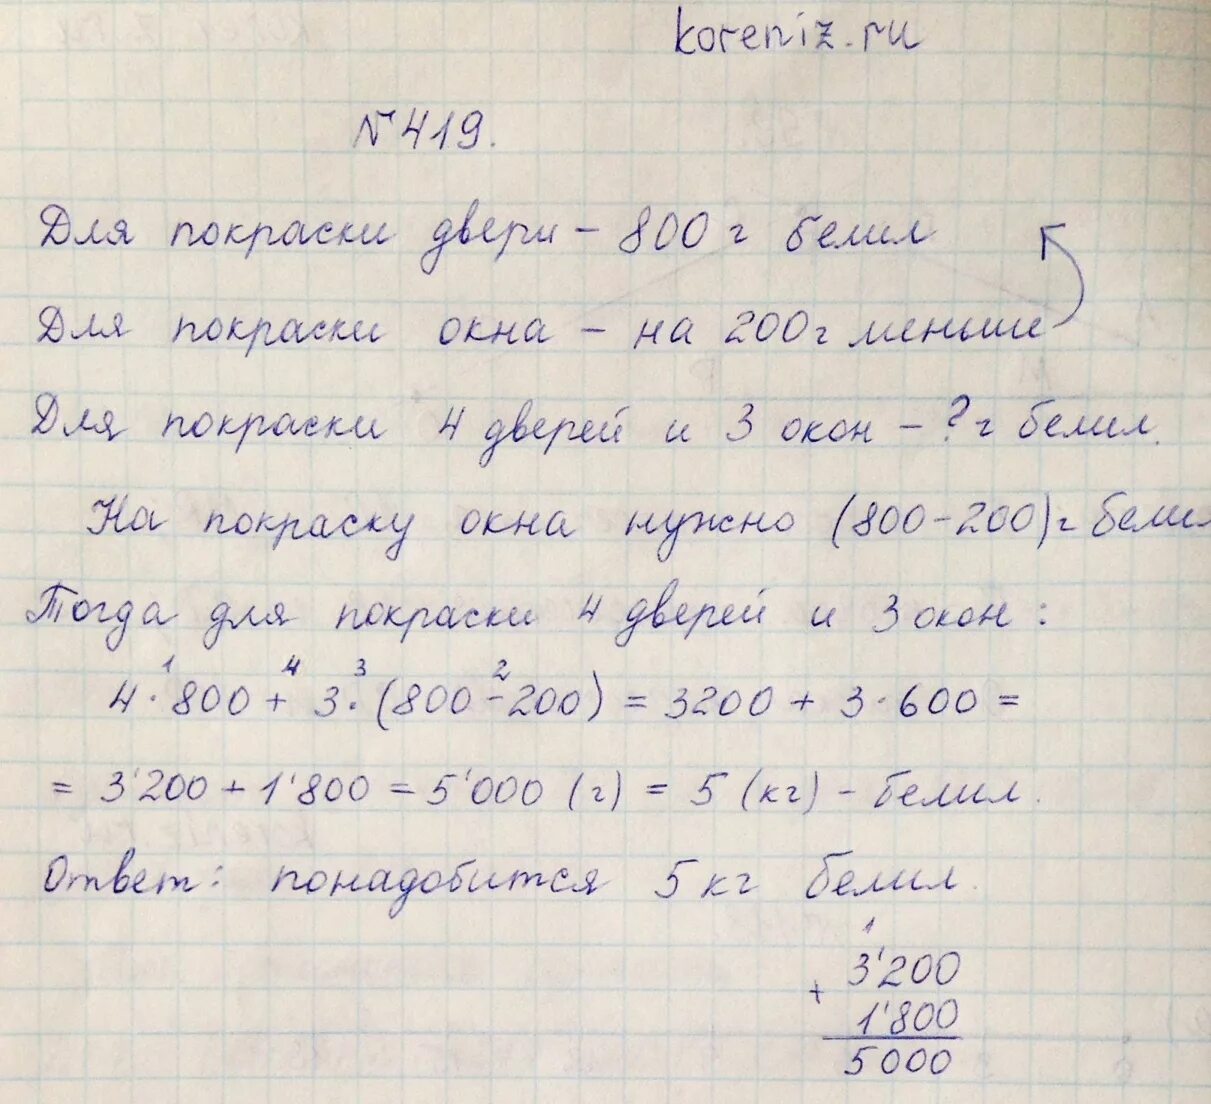 koreniz.ru
№419.
Для покраски двери – 800 г белил
Для покраски окна – на 200 г меньше
Для покраски 4 дверей и 3 окон – ? г белил.
На покраску окна нужно (800-200) г белил
Тогда для покраски 4 дверей и 3 окон:
1 4 3 2
4·800 + 3·(800-200) = 3200 + 3·600 =
= 3'200 + 1'800 = 5'000 (г) = 5 (кг) – белил.
Ответ: понадобится 5 кг белил.
1
3'200
+
1'800
5000